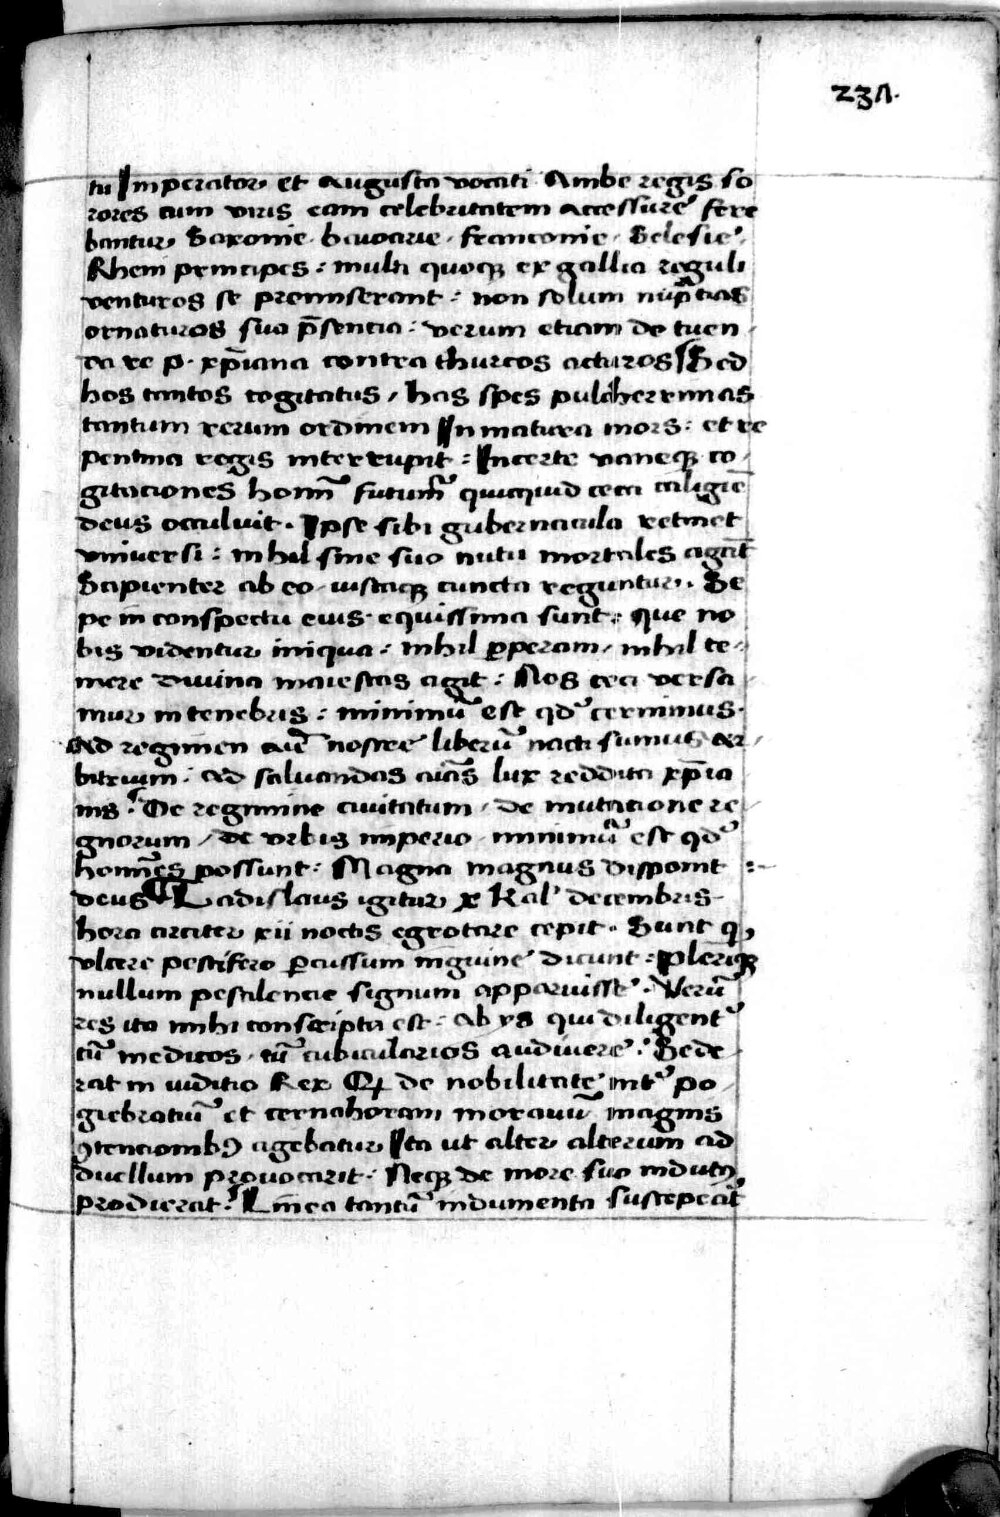 237.
tu Imperator et augusta vocati Ambe regis so
rores cum viris eam celebritatem accessure fere
bantur Saxonie bavarie franconie Slesie
Rheni principes : multi quoqꝫ ex gallia reguli
venturos se promiserant : non solum nup̄tias
ornaturos sua p̄sentia : verum etiam de tuen
da re p. xp̄iana contra thurcos acturos Sed
hos tantos cogitatus / has spes pulcherrimas
tantum rerum ordinem Inmatura mors : et re
pentina regis interrupit : Incerte vaneqꝫ co
gitaciones homī futurū quicquid ceca caligiē
deus occuluit . Ipse sibi gubernacula retinet
vniversi : nihil sine suo nutu mortales agāt
Sapienter ab eo iusteqꝫ cuncta reguntur . Se
pe in conspectu eius equissima sunt : que no
bis videntur iniqua : nihil ꝑperam / nihil te
mere divina maiestas agit : Nos ceca versa
mur in tenebris : minimū est qd̄ cernimus
Ad regimen aīe nostre liberū nacti sumus ar
bitrium : ad salvandas aīas lux reddita xp̄ia
nis . De regimine civitatum / de mutacione re
gnorum / de vrbis imperio minimū est qd̄
homīes possunt : Magna magnus disponit
deus Ladislaus igitur x kal' decembris
hora circiter xii noctis egrotare cepit . Sunt q̄
vlcere pestifero ꝑcussum inguine dicunt : Pleriqꝫ
nullum pestilencie signum apparuisse . Verū
res ita mihi conscripta est : ab ys qui diligent̄
tū medicos tū cubicularios audivere . Sede
rat in iuditio Rex Q de nobilitate int̄ po
giebratiū et cernahoram moravū magnis
ꝯtencionibꝰ agebatur Ita ut alter alterum ad
duellum provocarit . Neqꝫ de more suo indutꝰ
prodierat . Linea tantū indumenta susceperat